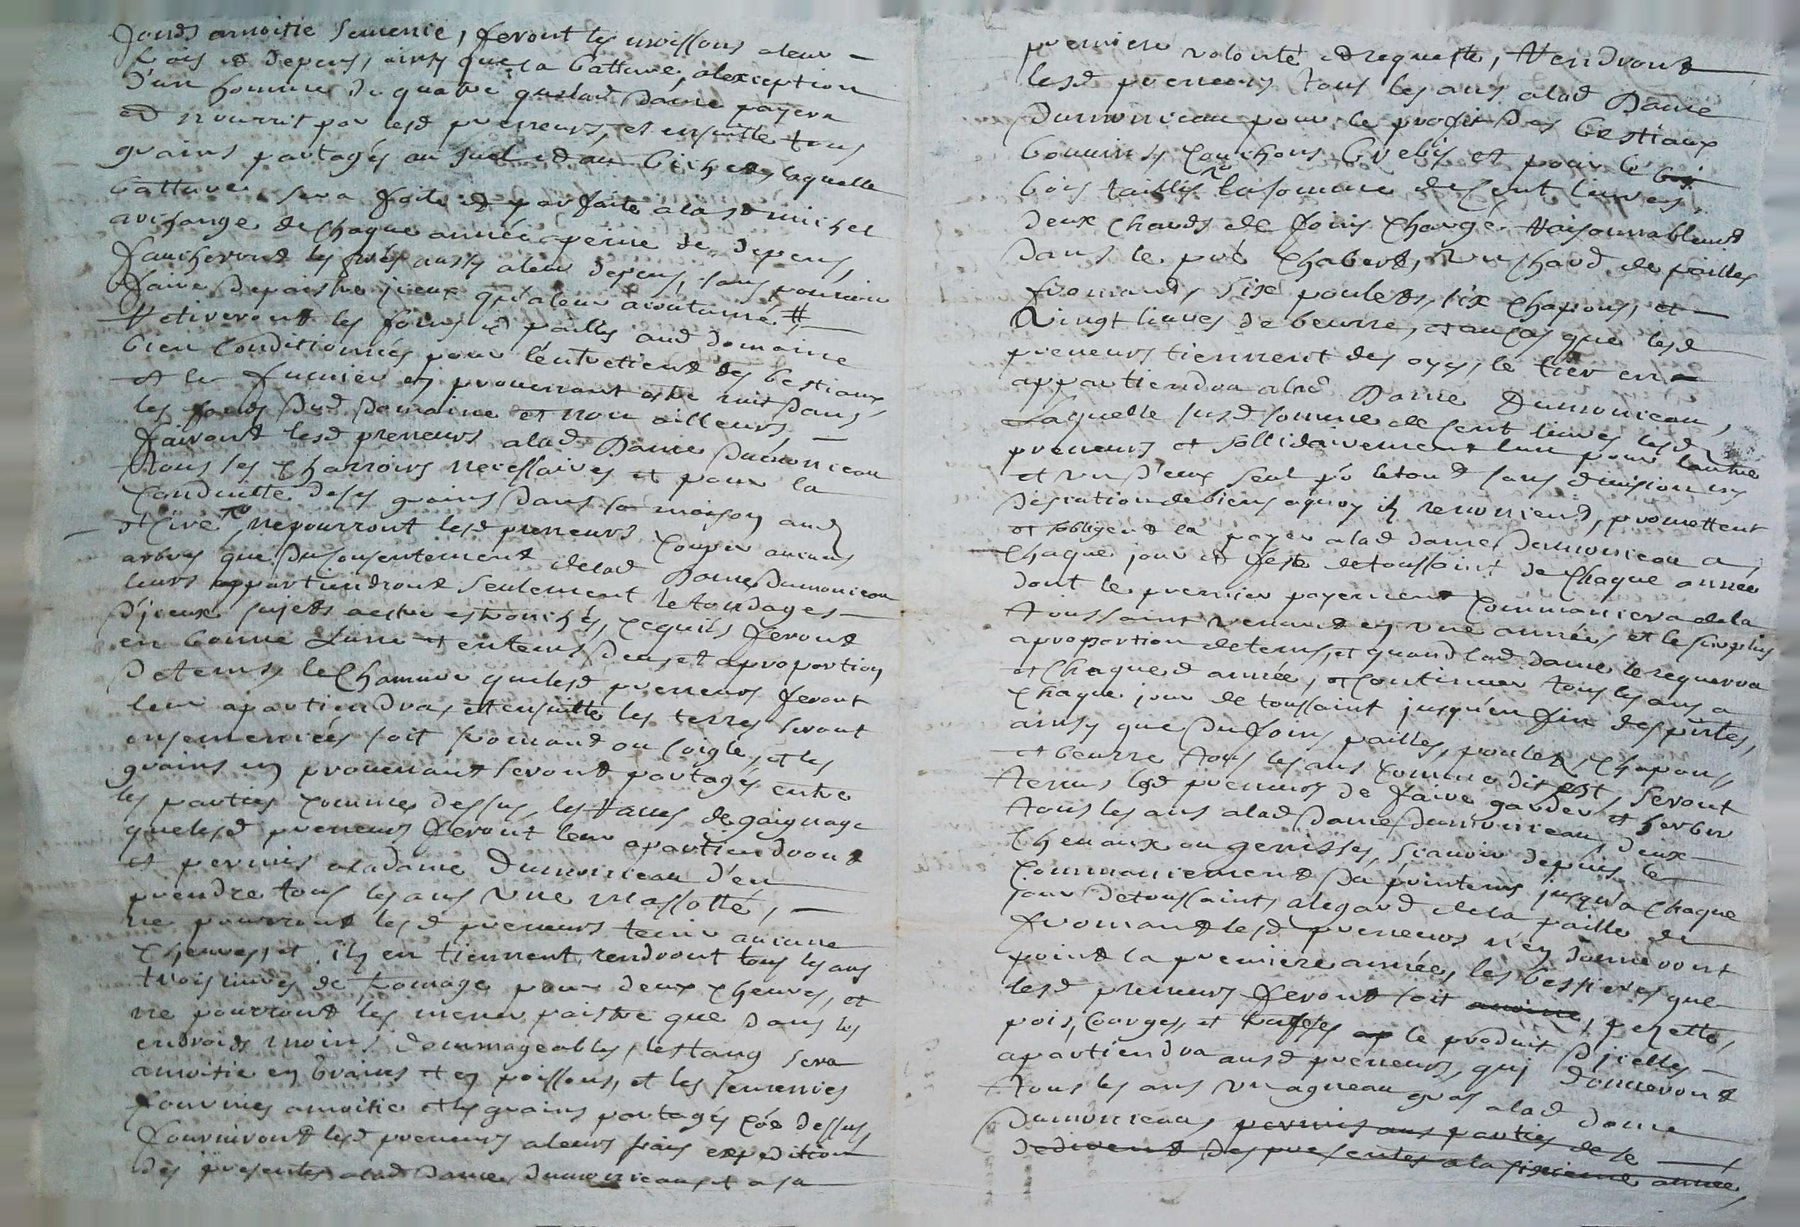 fonds amoitie semence, feront les moissons aleur
frais et depens, ainsy que la batture, alexception
d'un homme de quatre que lad dame payera
et nourrit par lesd preneurs, et ensuitte tous
grains partagés au suel et au bichet, laquelle
batture sera faite et parfaite a la st michel
archange de chaque année peine de depens,
faucheront les prés aussy aleur depens, sans pouvoir
faire depaistre iceux qu'aleur acoutumé #
Retireront les foins et pailles aud domaine
bien conditionnés pour l'entretient des bestiaux,
et le fumier en provenant estre mit dans
les fonds dud domaine et non ailleurs
fairont lesd preneurs alad Dame Dumonceau
tous les charrois necessaires et pour la
conduitte desd grains dans sa maison aud
et Ciré, ne pourront lesd preneurs couper aucuns
arbres que du consentement delad Dame Dumonceau
leurs appartiendront seulement le tondages
d'iceux sujets aestre estronchés, ce qu'ils feront
en bonne Lune et entems deu, et aproportion
de tems, le Chanvre que lesd preneurs feront
leur apartiendra, et ensuitte les terres seront
ensemencées soit fromand ou soigle, et les
grains en provenant seront partagés entre
les parties comme dessus, les raves de gaignage
que lesd preneurs feront leur apartiendront
et permis aladame Dumonceau d'en
prendre tous les ans une massotté,
ne pourront lesd preneurs tenir aucune
Chevres, et ils en tiennent rendront tous les ans
trois livres de fromage pour deux chevres, et
ne pourront les mener paistre que dans les
endroids moins dommageables, l'estang sera
amoitie en brains et en poissons, et les semences
fournies amoitie et les grains partagés coe dessus
fourniront lesd preneurs aleurs frais expedition
des presentes alad dame Dumonceau et a sa
premiere volonté et requeste, Rendront
lesd preneurs tous les ans alad Dame
Dumonceau pour le profit des bestiaux
bouvins, couchons brebis et pour le bois
bois taillis la somme de cent livres,
deux chards de foins chargé Raisonnablement
dans le pré chabert, un chard de pailles
fromand, six poulets, six chapons, et
Vingt livres de beurre, et aucas que lesd
preneurs tiennent des oyes, le tier en
appartiendra alad Dame Dumonceau,
Laquelle susd somme de cent livres lesd
preneurs et sollidairement lun pour lautre
et un d'eux seul po le tout sans division ny
discution de biens aquoy ils renoncent, promettent
et s'obligent la payer alad dame Dumonceau a
chaque jour et feste de toussaint de chaque année
dont le premier payement commancera de la
toussaint venant en une année, et le surplus
aproportion de tems, et quand lad dame le requerra
et chaque d année, et continuer tous les ans a
chaque jour de toussaint jusqu'en fin des prntes,
ainsy que du foins, pailles, poulets, chapons,
et beurre tous les ans comme dit est, seront
tenus lesd preneurs de faire garder et herber
tous les ans alad dame Dumonceau, deux
chevaux ou genisses, scavoir depuis le
commancement du printems jusqu'a chaque
jour de toussaint, alegard de la paille de
fromand lesd preneurs n'en donneront
point la premiere année, les besperes que
lesd preneurs feront soit avoine, pezette,
pois, courges, et truffes ap le produit d'icelles
apartiendra ausd preneurs, qui donneront
tous les ans un agneau gras alad dame
Dumonceau, permis aux parties de se
dedirent des presentes a la sixieme année,